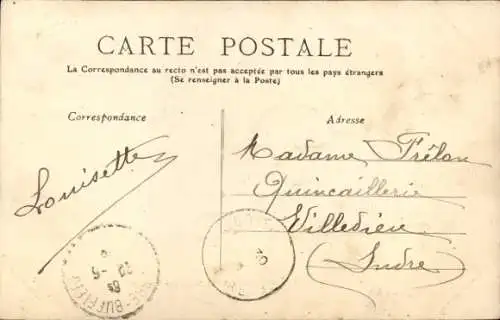 CARTE POSTALE
La Correspondance au recto n'est pas acceptée par tous les pays étrangers
(Se renseigner à la Poste)
Correspondance
Adresse
Louisette
Madame Frélon
Quincaillerie
Villedieu
(Indre)